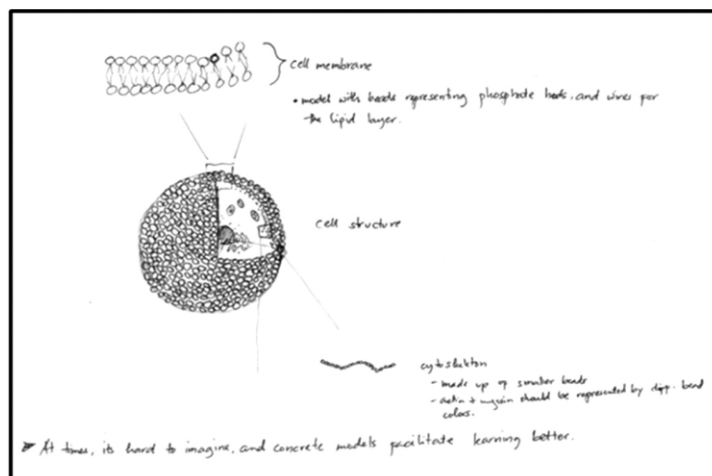 cell membrane
• model with beads representing phosphate heads, and wires for
the lipid layer.
cell structure
cytoskeleton
- made up of smaller beads
- actin + myosin should be represented by diff. bead
colors.
At times, its hard to imagine, and concrete models facilitate learning better.